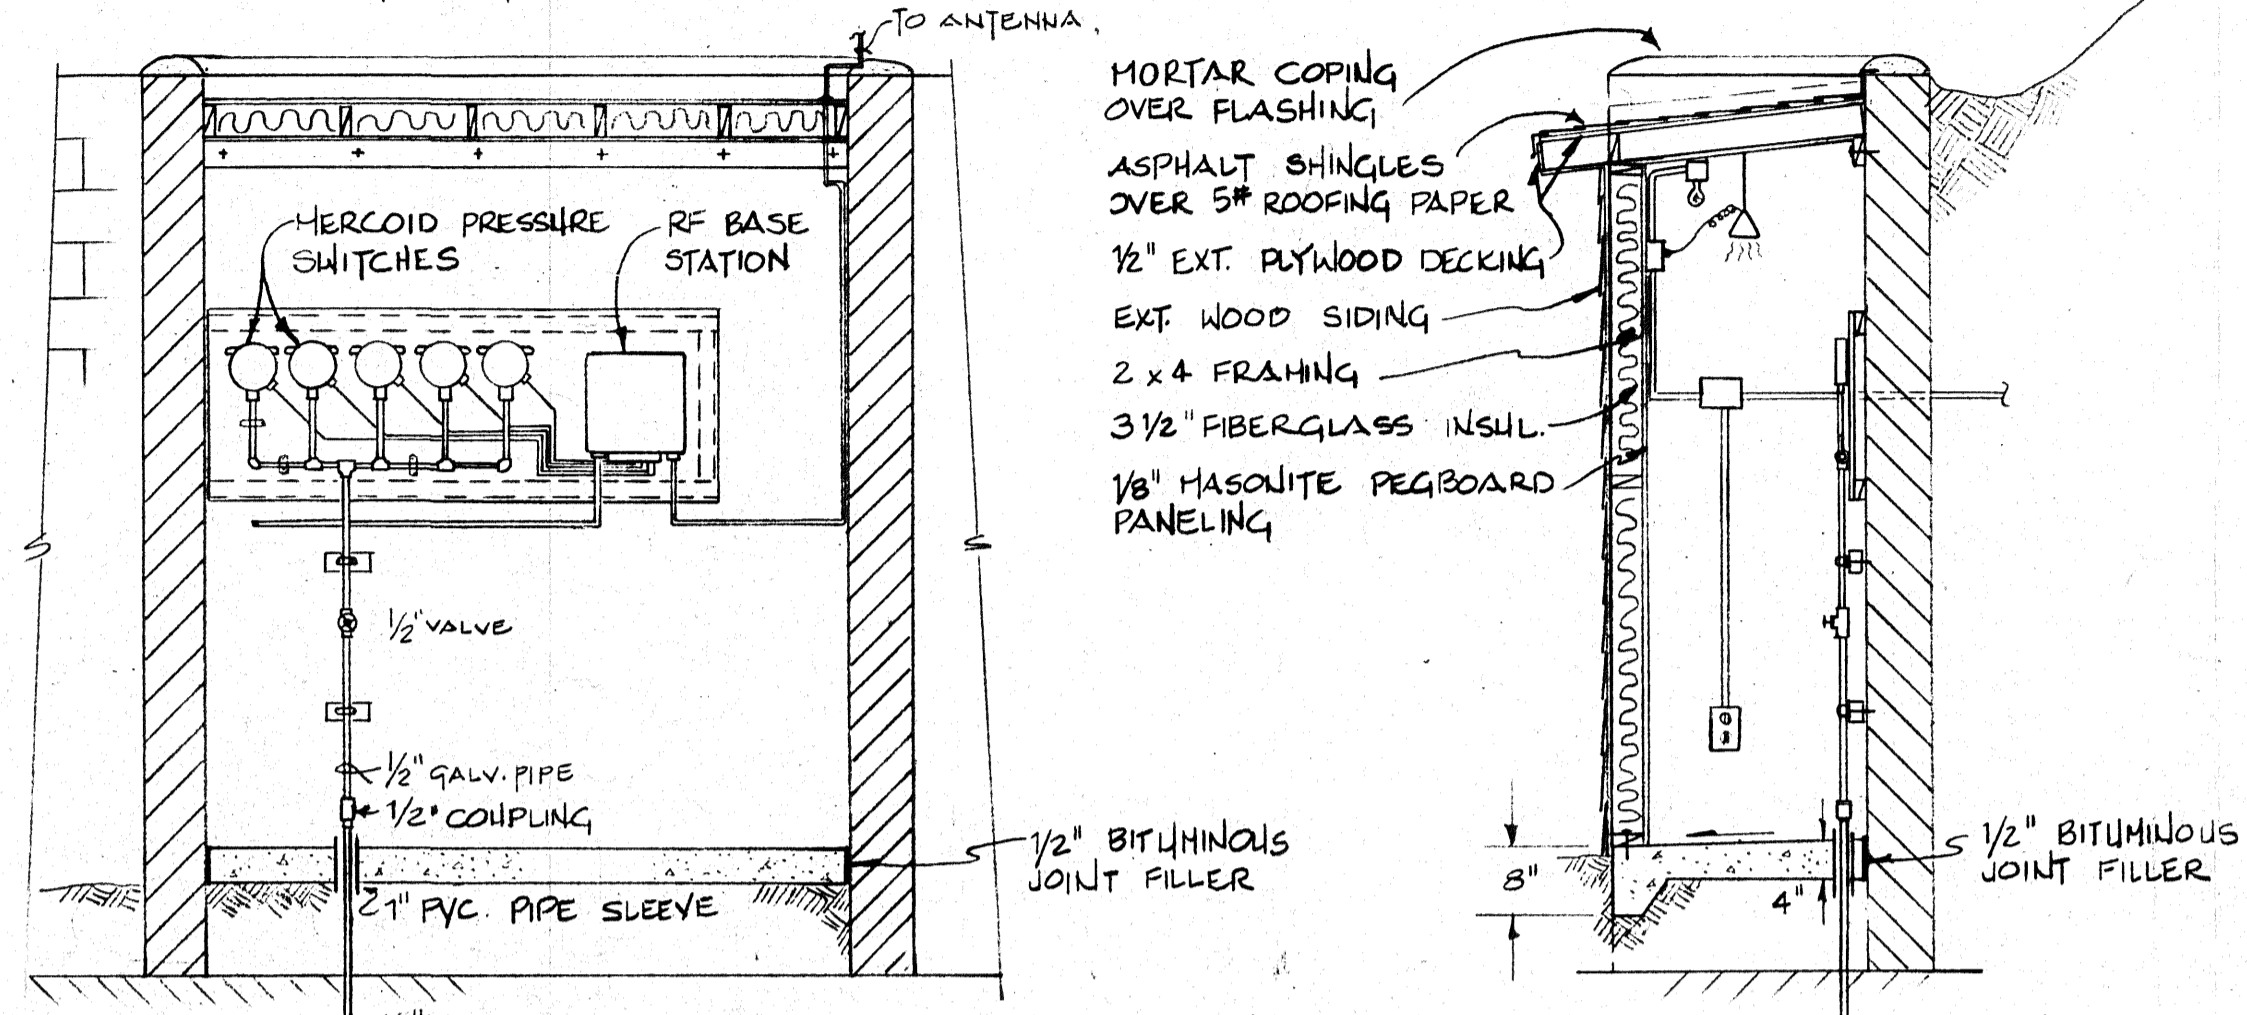 TO ANTENNA.
MERCOID PRESSURE
SWITCHES
RF BASE
STATION
1/2" VALVE
1/2" GALV. PIPE
1/2" COUPLING
1" PVC. PIPE SLEEVE
1/2" BITUMINOUS
JOINT FILLER
MORTAR COPING
OVER FLASHING
ASPHALT SHINGLES
OVER 5# ROOFING PAPER
1/2" EXT. PLYWOOD DECKING
EXT. WOOD SIDING
2 x 4 FRAMING
3 1/2" FIBERGLASS INSUL.
1/8" MASONITE PEGBOARD
PANELING
8"
4"
1/2" BITUMINOUS
JOINT FILLER